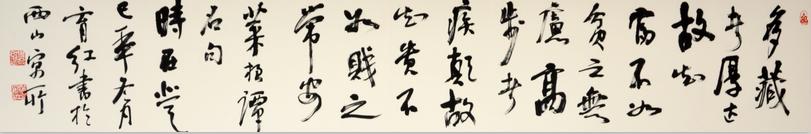 多藏
者厚亡
故知
富不如
貧之無
慮高
步者
疾顛故
知貴不
如賤之
常安
菜根譚
名句
時在癸
巳年冬月
育紅書於
西山寓所